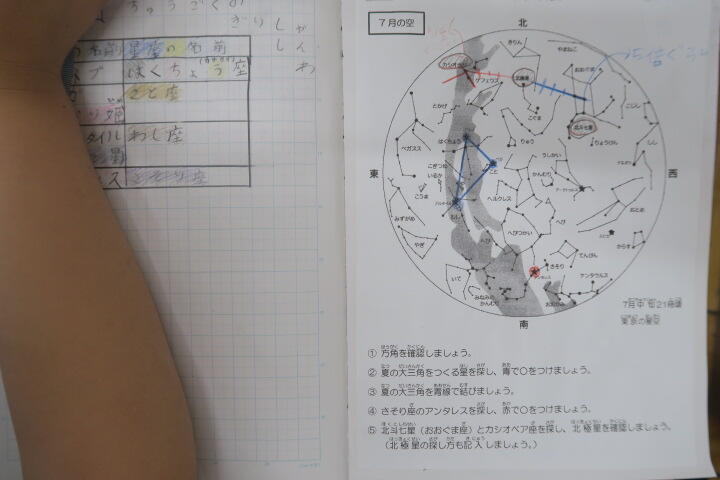 ちゅうごくの
名前 星座の名前
ブ はくちょう座
こと座
姫
タイル わし座
ス さそり座
7月の空
北
きりん
やまねこ
カシオペヤ
ケフェウス
北極星
おおぐま
5倍ぐらい
とかげ
こぐま
こじし
北斗七星
はくちょう
りゅう
りょうけん
しし
ペガスス
うしかい
東
こと
かんむり
西
こぎつね
いるか
こうま
ヘルクレス
おとめ
みずがめ
わし
へび
からす
やぎ
へび
へびつかい
てんびん
いて
さそり
アンタレス
ケンタウルス
みなみの
かんむり
おおかみ
南
7月中旬21時頃
東京の星空
① 方角を確認しましょう。
② 夏の大三角をつくる星を探し、青で○をつけましょう。
③ 夏の大三角を青線で結びましょう。
④ さそり座のアンタレスを探し、赤で○をつけましょう。
⑤ 北斗七星(おおぐま座)とカシオペア座を探し、北極星を確認しましょう。
(北極星の探し方も記入しましょう。)